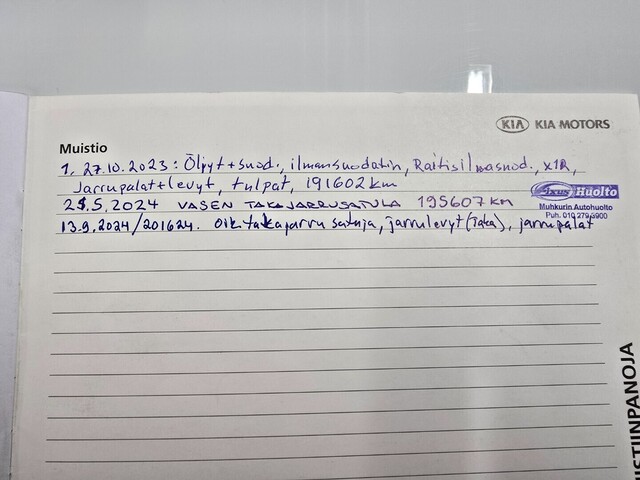 KIA KIA MOTORS
Muistio
1, 27.10.2023: Öljyt+suod., ilmansuodatin, Raitisilmasuod., x1R,
Jarrupalat+levyt, tulpat, 191602 km
Huolto
21.5.2024 VASEN TAKAJARRUSATULA 195607 KM
Muhkurin Autohuolto
Puh. 010 279 3900
13.9.2024/201624. Oik takajarru satula, jarrulevyt (Taka), jarrupalat